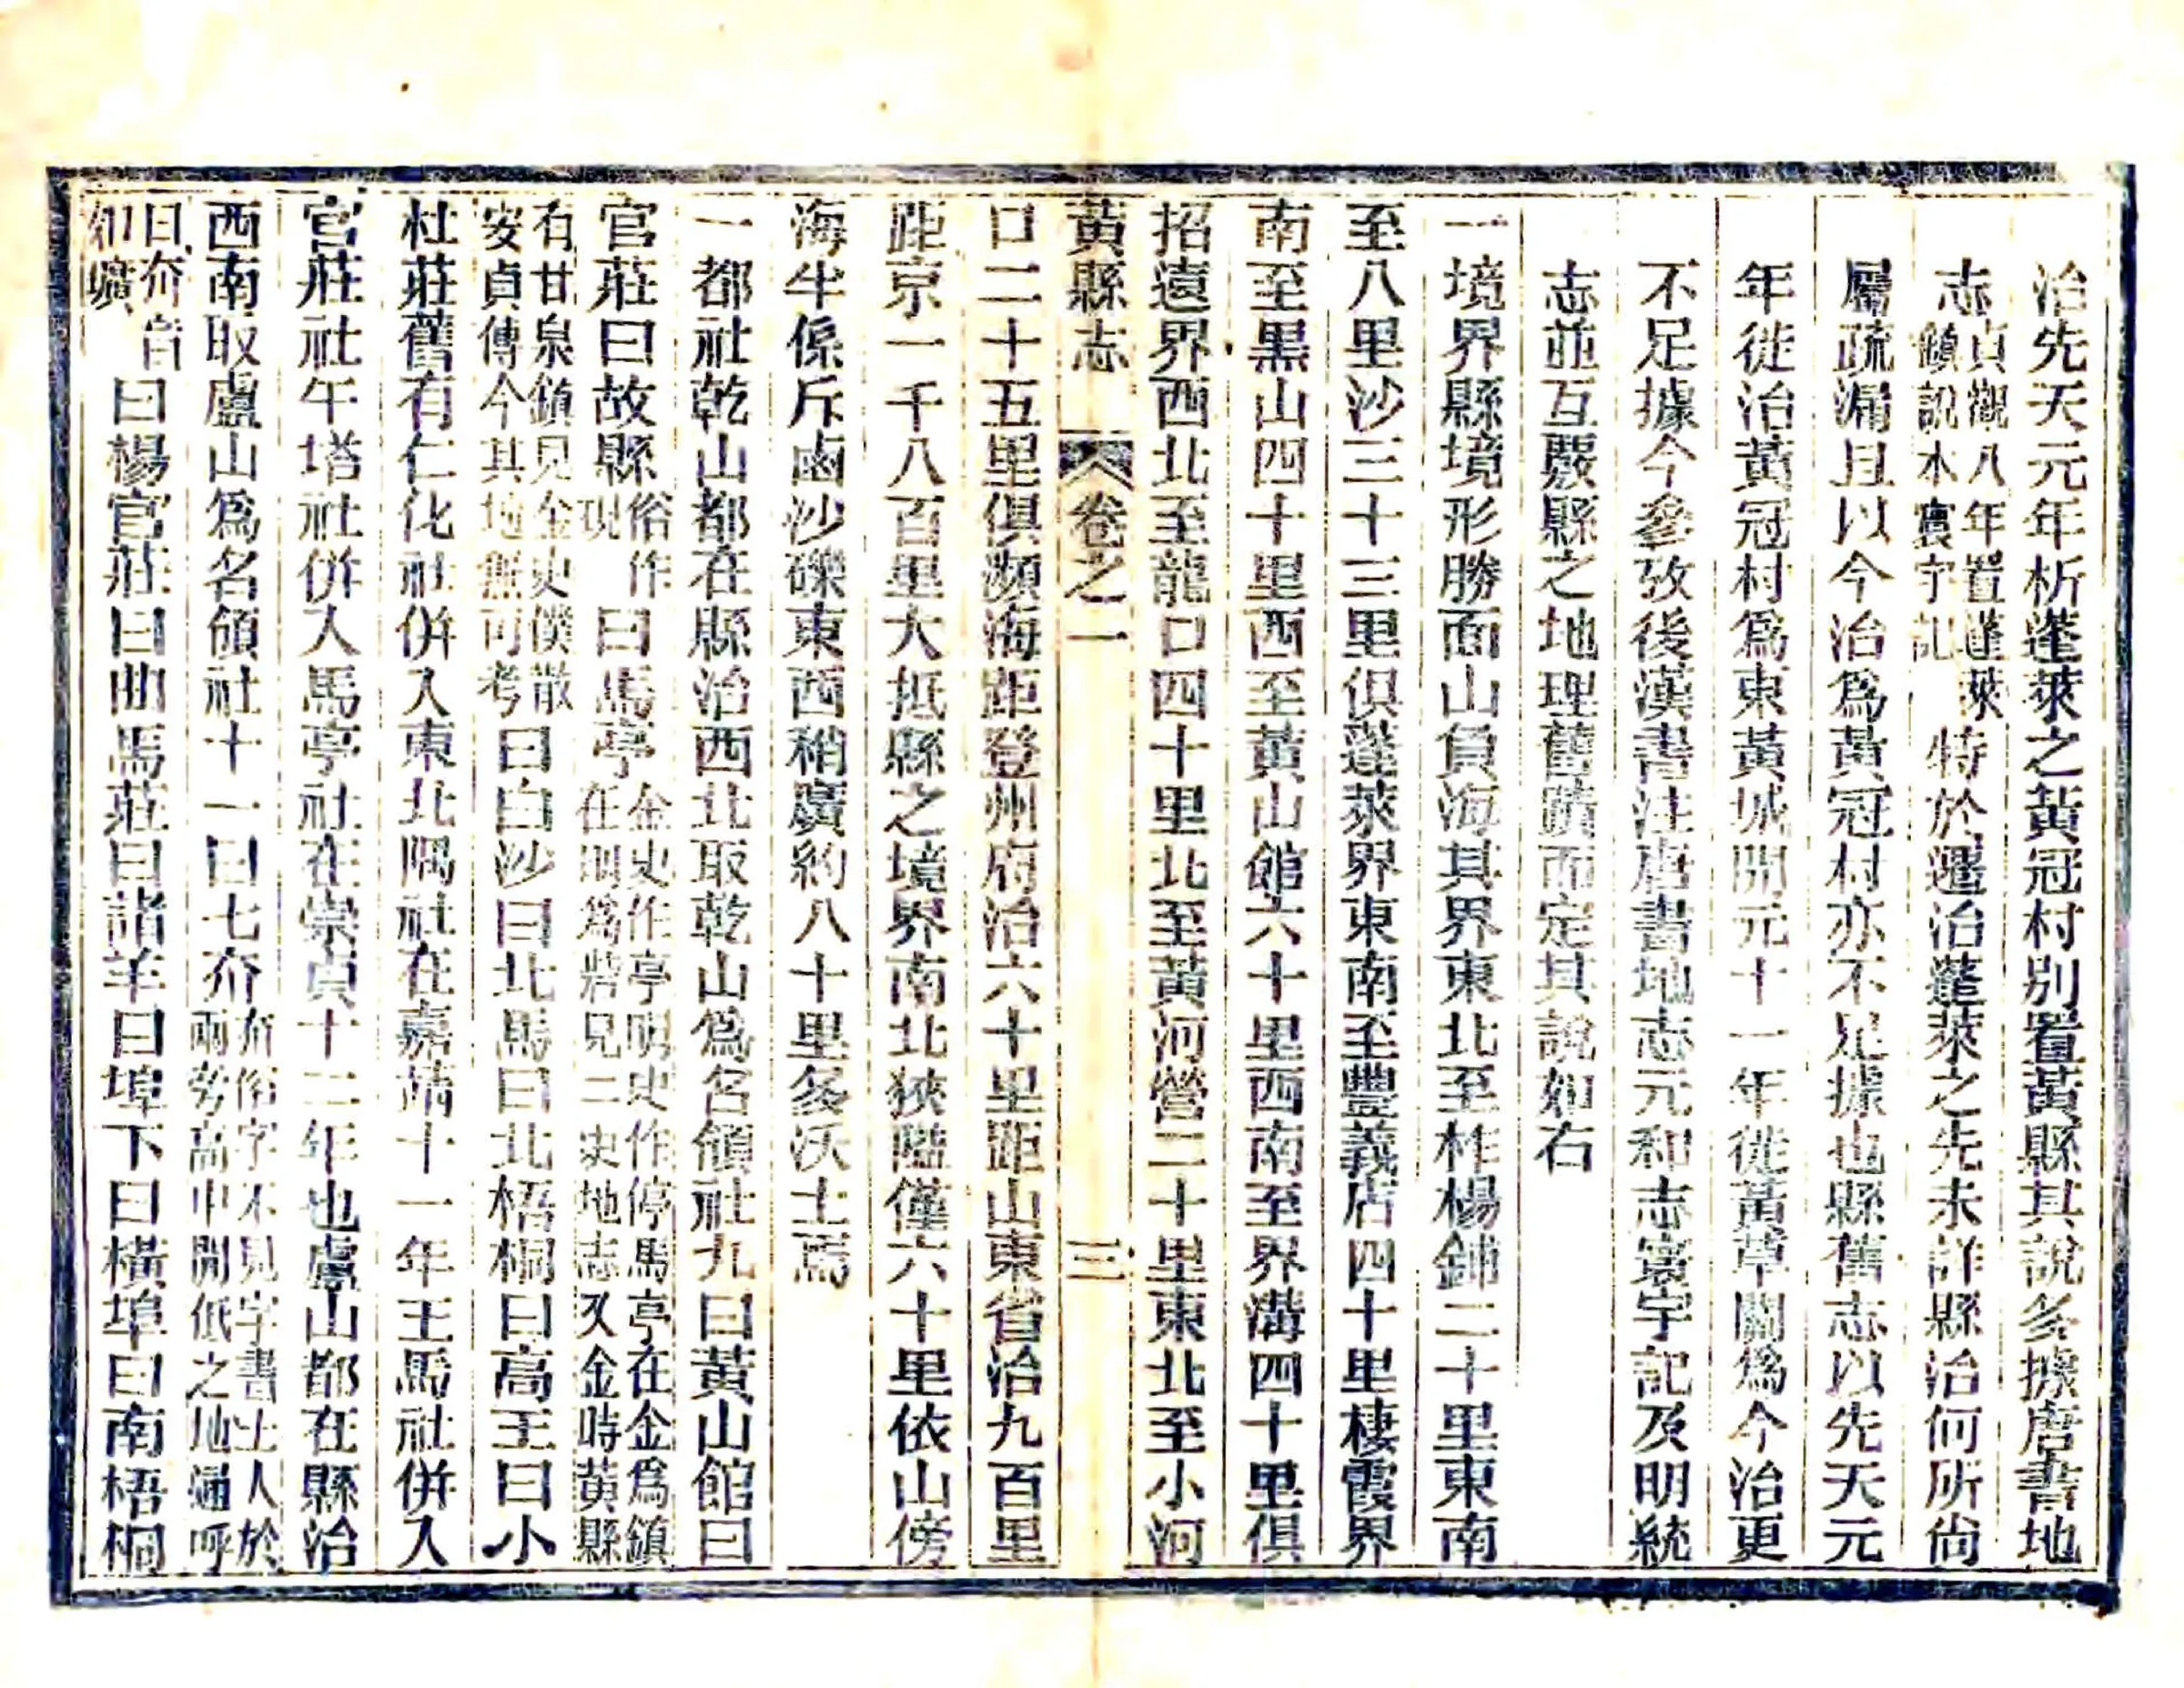 治先天元年析蓬萊之黃冠村別置黃縣其說多據唐書地
志貞觀八年置蓬萊鎮說本寰宇記特於遷治蓬萊之先未詳縣治何所尙
屬疏漏且以今治爲黃冠村亦不足據也縣舊志以先天元
年徙治黃冠村爲東黃城開元十一年徙黃草關爲今治更
不足據今參攷後漢書注唐書地志元和志寰宇記及明統
志並互覈縣之地理舊蹟而定其說如右
一境界縣境形勝面山負海其界東北至柞楊鋪二十里東南
至八里沙三十三里俱蓬萊界東南至豐義店四十里棲霞界
南至黑山四十里西至黃山館六十里西南至界溝四十里俱
招遠界西北至龍口四十里北至黃河營二十里東北至小河
黃縣志 卷之一 三
口二十五里俱瀕海距登州府治六十里距山東省治九百里
距京一千八百里大抵縣之境界南北狹隘僅六十里依山傍
海半係斥鹵沙礫東西稍廣約八十里多沃土焉
一都社乾山都在縣治西北取乾山爲名領社九曰黃山館曰
官莊曰故縣俗作現曰馬亭金史作亭明史作停馬亭在金爲鎮在明爲砦見二史地志又金時黃縣
有甘泉鎮見金史僕散安貞傳今其地無可考曰白沙曰北馬曰北梧桐曰高王曰小
杜莊舊有仁化社併入東北隅社在嘉靖十一年王馬社併入
官莊社午塔社併入馬亭社在崇貞十二年也盧山都在縣治
西南取盧山爲名領社十一曰七夼夼俗字不見字書土人於兩旁高中開低之地通呼
曰夼音如曠曰楊官莊曰曲馬莊曰諸羊曰埠下曰橫埠曰南梧桐